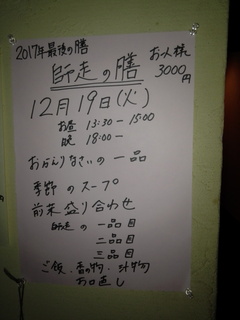 2017年最後の膳
師走の膳
お一人様
3000円
12月19日(火)
お昼 13:30-15:00
晩 18:00-
おかえりなさいの一品
季野のスープ
前菜盛り合わせ
師走の一品目
二品目
三品目
ご飯・香の物・汁物
お口直し